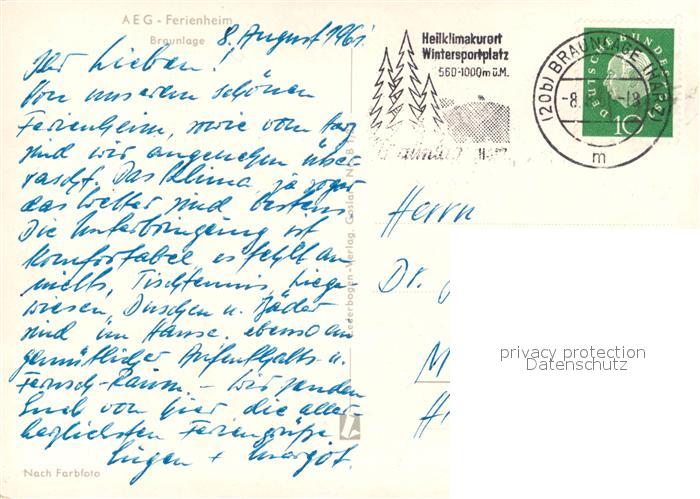 AEG - Ferienheim
Braunlage
8. August 1961
Ihr Lieben!
Von unserem schönen
Ferienheim, sowie vom Harz
sind wir angenehm über
rascht. Das Klima, ja sogar
das Wetter sind bestens
Die Unterbringung ist
komfortabel es fehlt an
nichts, Tischtennis, Liege
wiesen, Duschen u. Bäder
sind im Hause. ebenso ein
gemütlicher Aufenthalts- u.
Fernseh-Raum - Wir senden
Euch von hier die aller-
herzlichsten Feriengrüße
Eugen + Margot.
Nach Farbfoto
Lederbogen-Verlag, Goslar
Heilklimakurort
Wintersportplatz
560-1000m ü.M.
Braunlage Harz
(20b) BRAUNLAGE (HARZ)
-8.
-18
m
DEUTSCHE BUNDESPOST
10
Herrn
Dr.
M
H
privacy protection
Datenschutz